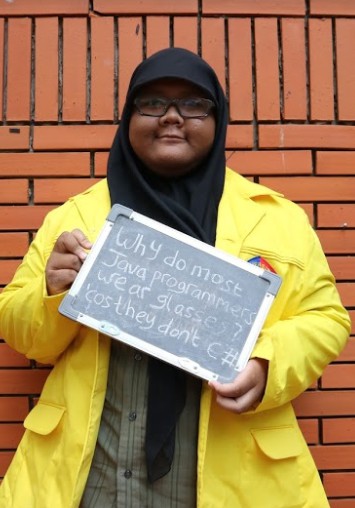 Why do most
Java programmers
wear glasses?
'Cos they don't C #